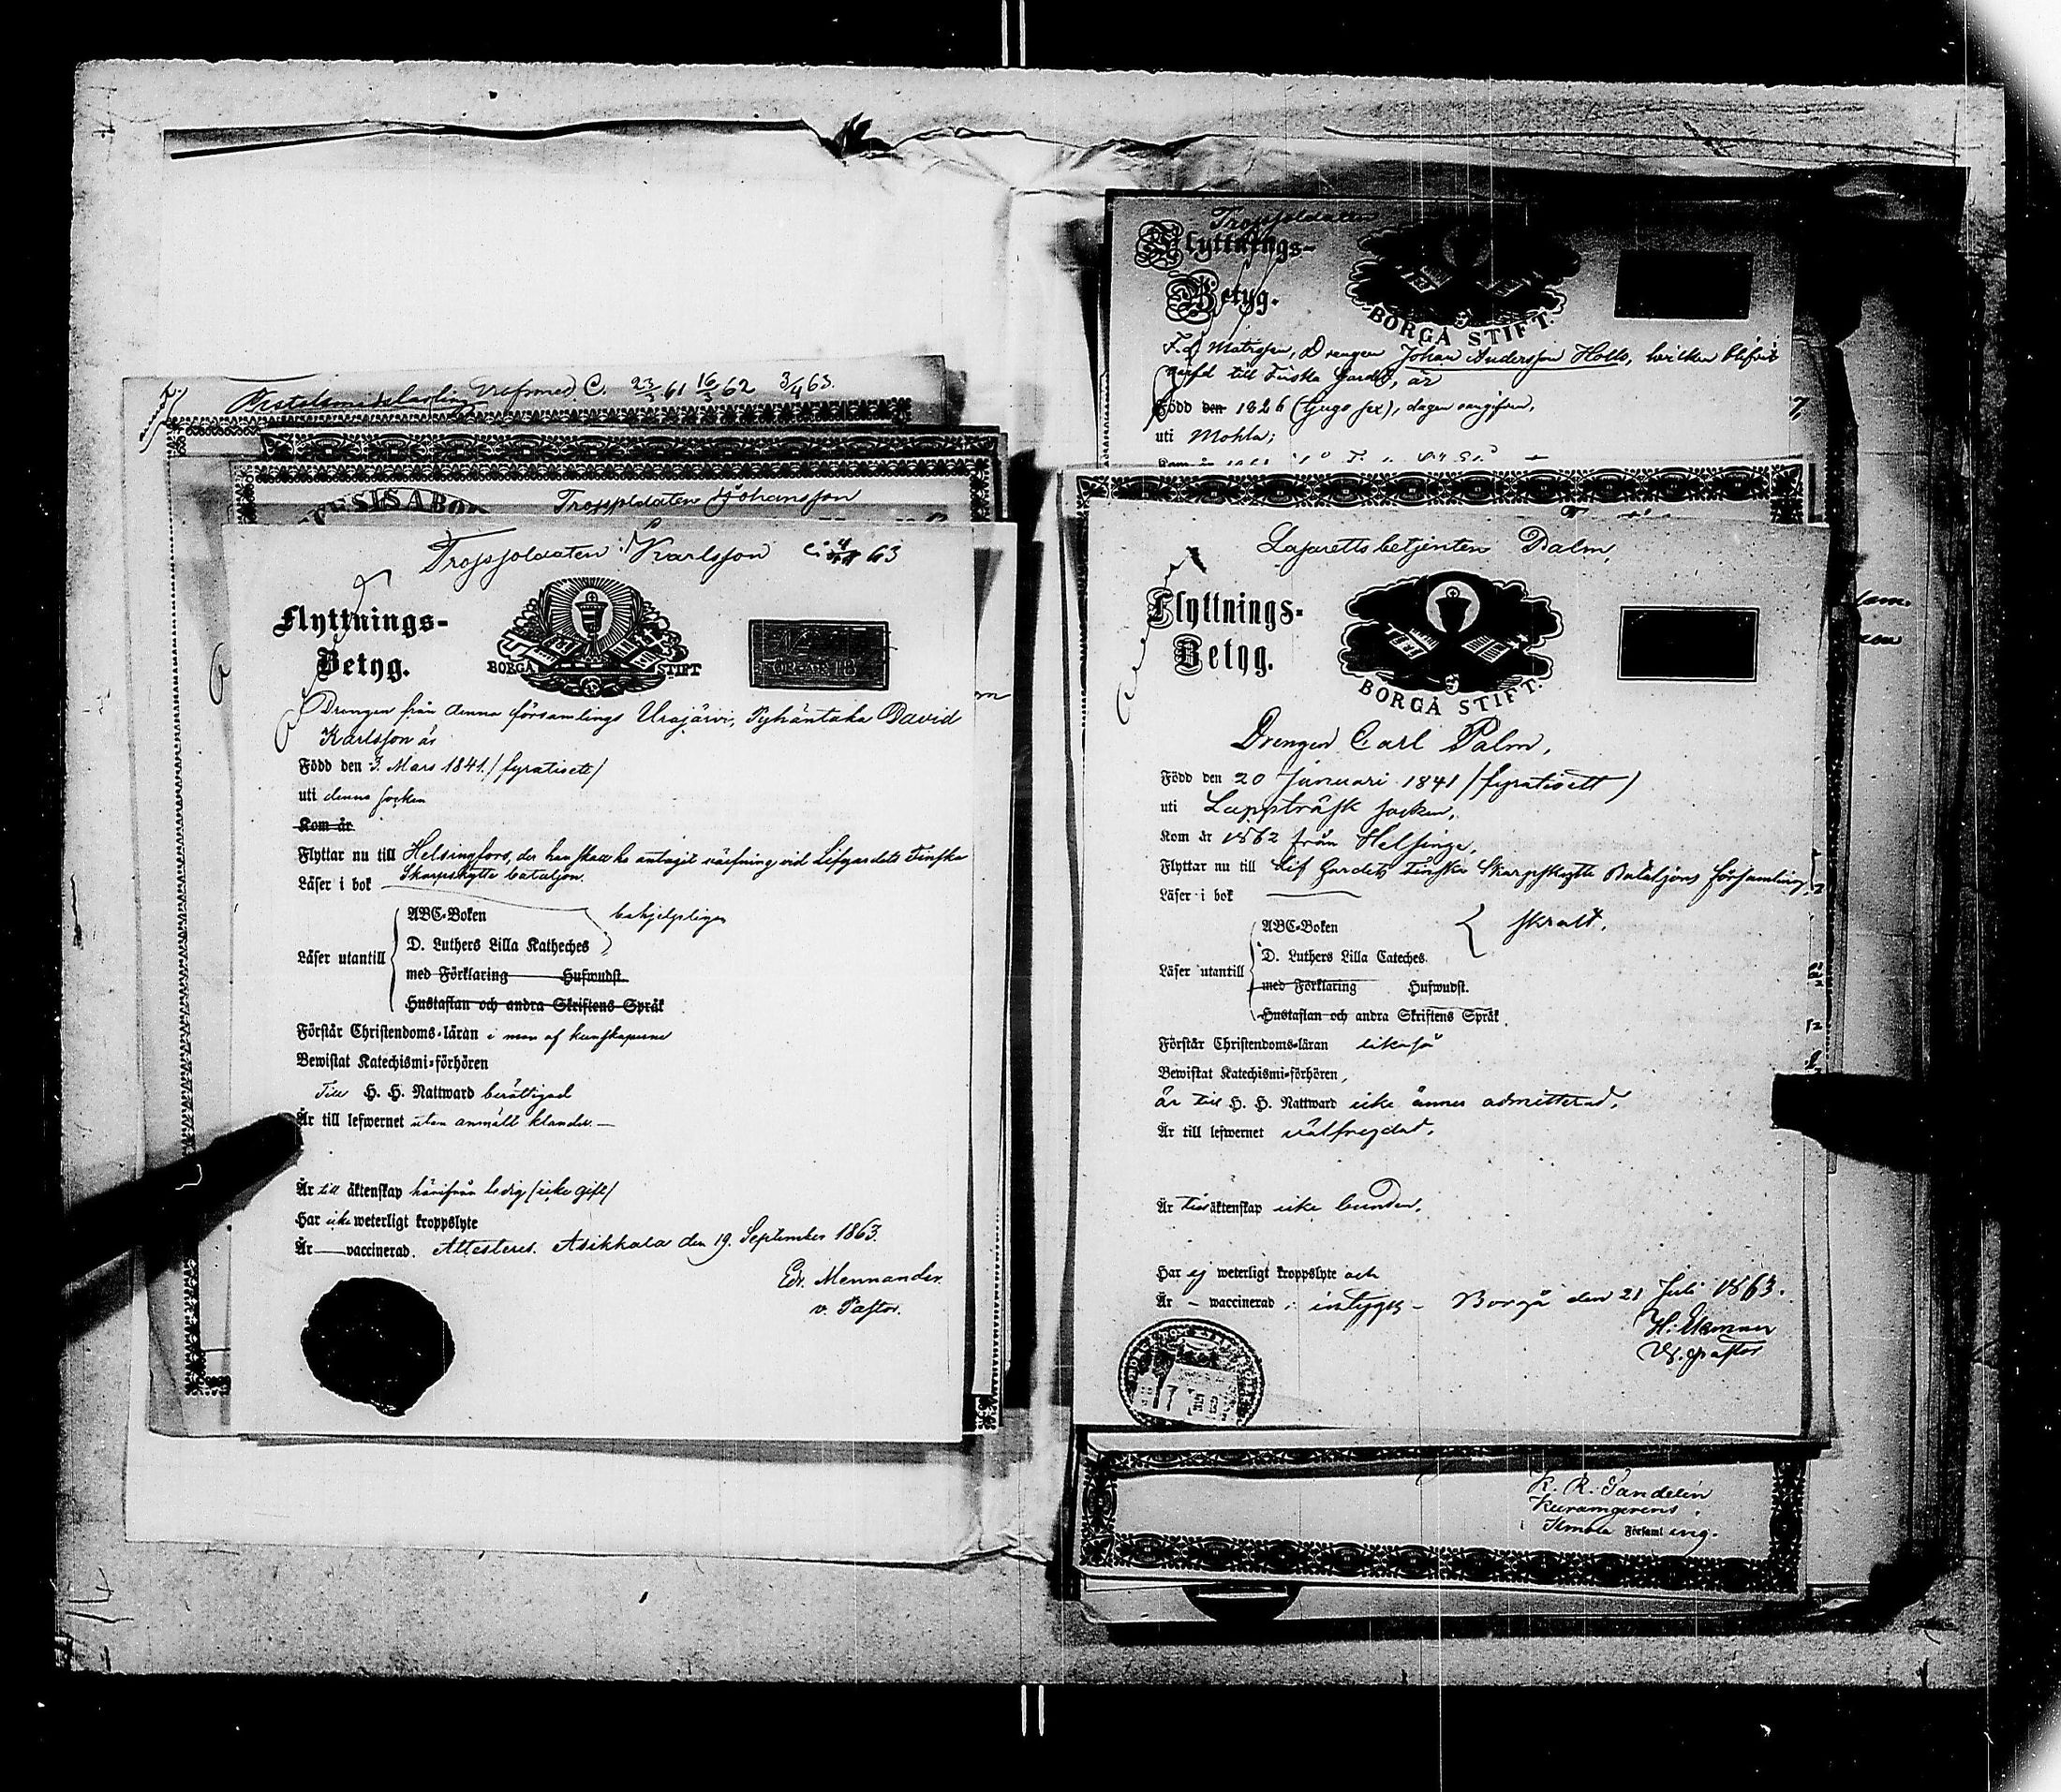 Vefrmed. C. 23/2 61 16/3 62 3/4 63.
Troppsoldaten Johansson
Troppsoldaten Karlsson 63
Flyttnings-
Betyg.
BORGÅ STIFT
Drengen från denna församlings Urajärvi, Pyhäntaka David
Karlsson är
Född den 3. Mars 1841. /fyratiett/
uti denna socken
Kom år
Flyttar nu till Helsingfors, der han skall ha antagit värfning vid Lifgardets Finska
Skarpskytte bataljon.
Läser i bok
ABC-Boken
behjelpligen
D. Luthers Lilla Katheches
Läser utantill
med Förklaring Hufwudst.
Hustaflan och andra Skriftens Språk
Förstår Christendoms-läran i mon af kunskaperne
Bewistat Katechismi-förhören
Till H. H. Nattward berättigad
Är till lefwernet utan anmäldt klander.—
Är till äktenskap härifrån ledig /icke gift/
Har icke weterligt kroppslyte
Är — vaccinerad. Attesteres. Asikkala den 19. September 1863.
Edv. Mennander.
v. Pastor.
Troppsoldaten
Flyttnings-
Betyg.
BORGÅ STIFT.
F.d. Matrosen, Drengen Johan Andersson Hollo, hvilken blifvit
värfd till Finska Gardet, är
Född den 1826 (tjugo sex), dagen oangifven,
uti Mohla;
Lasarettsbetjenten Palm,
Flyttnings-
Betyg.
BORGÅ STIFT.
Drengen Carl Palm,
Född den 20 Januari 1841 /fyratiett/
uti Lappträsk socken,
Kom år 1862 från Helsinge,
Flyttar nu till Lif Gardets Finska Skarpskytte Bataljons församling,
Läser i bok
ABC-Boken
svalt.
D. Luthers Lilla Cateches.
Läser utantill
med Förklaring Hufwudst.
Hustaflan och andra Skriftens Språk
Förstår Christendoms-läran likaså
Bewistat Katechismi-förhören,
är till H. H. Nattward icke ännu admitterad.
Är till lefwernet välfrejdad.
Är till äktenskap icke bunden.
Har ej weterligt kroppslyte och
Är — waccinerad; intygas — Borgå den 21 Juli 1863.
V. pastor
K. R. Sandelin
Församling.